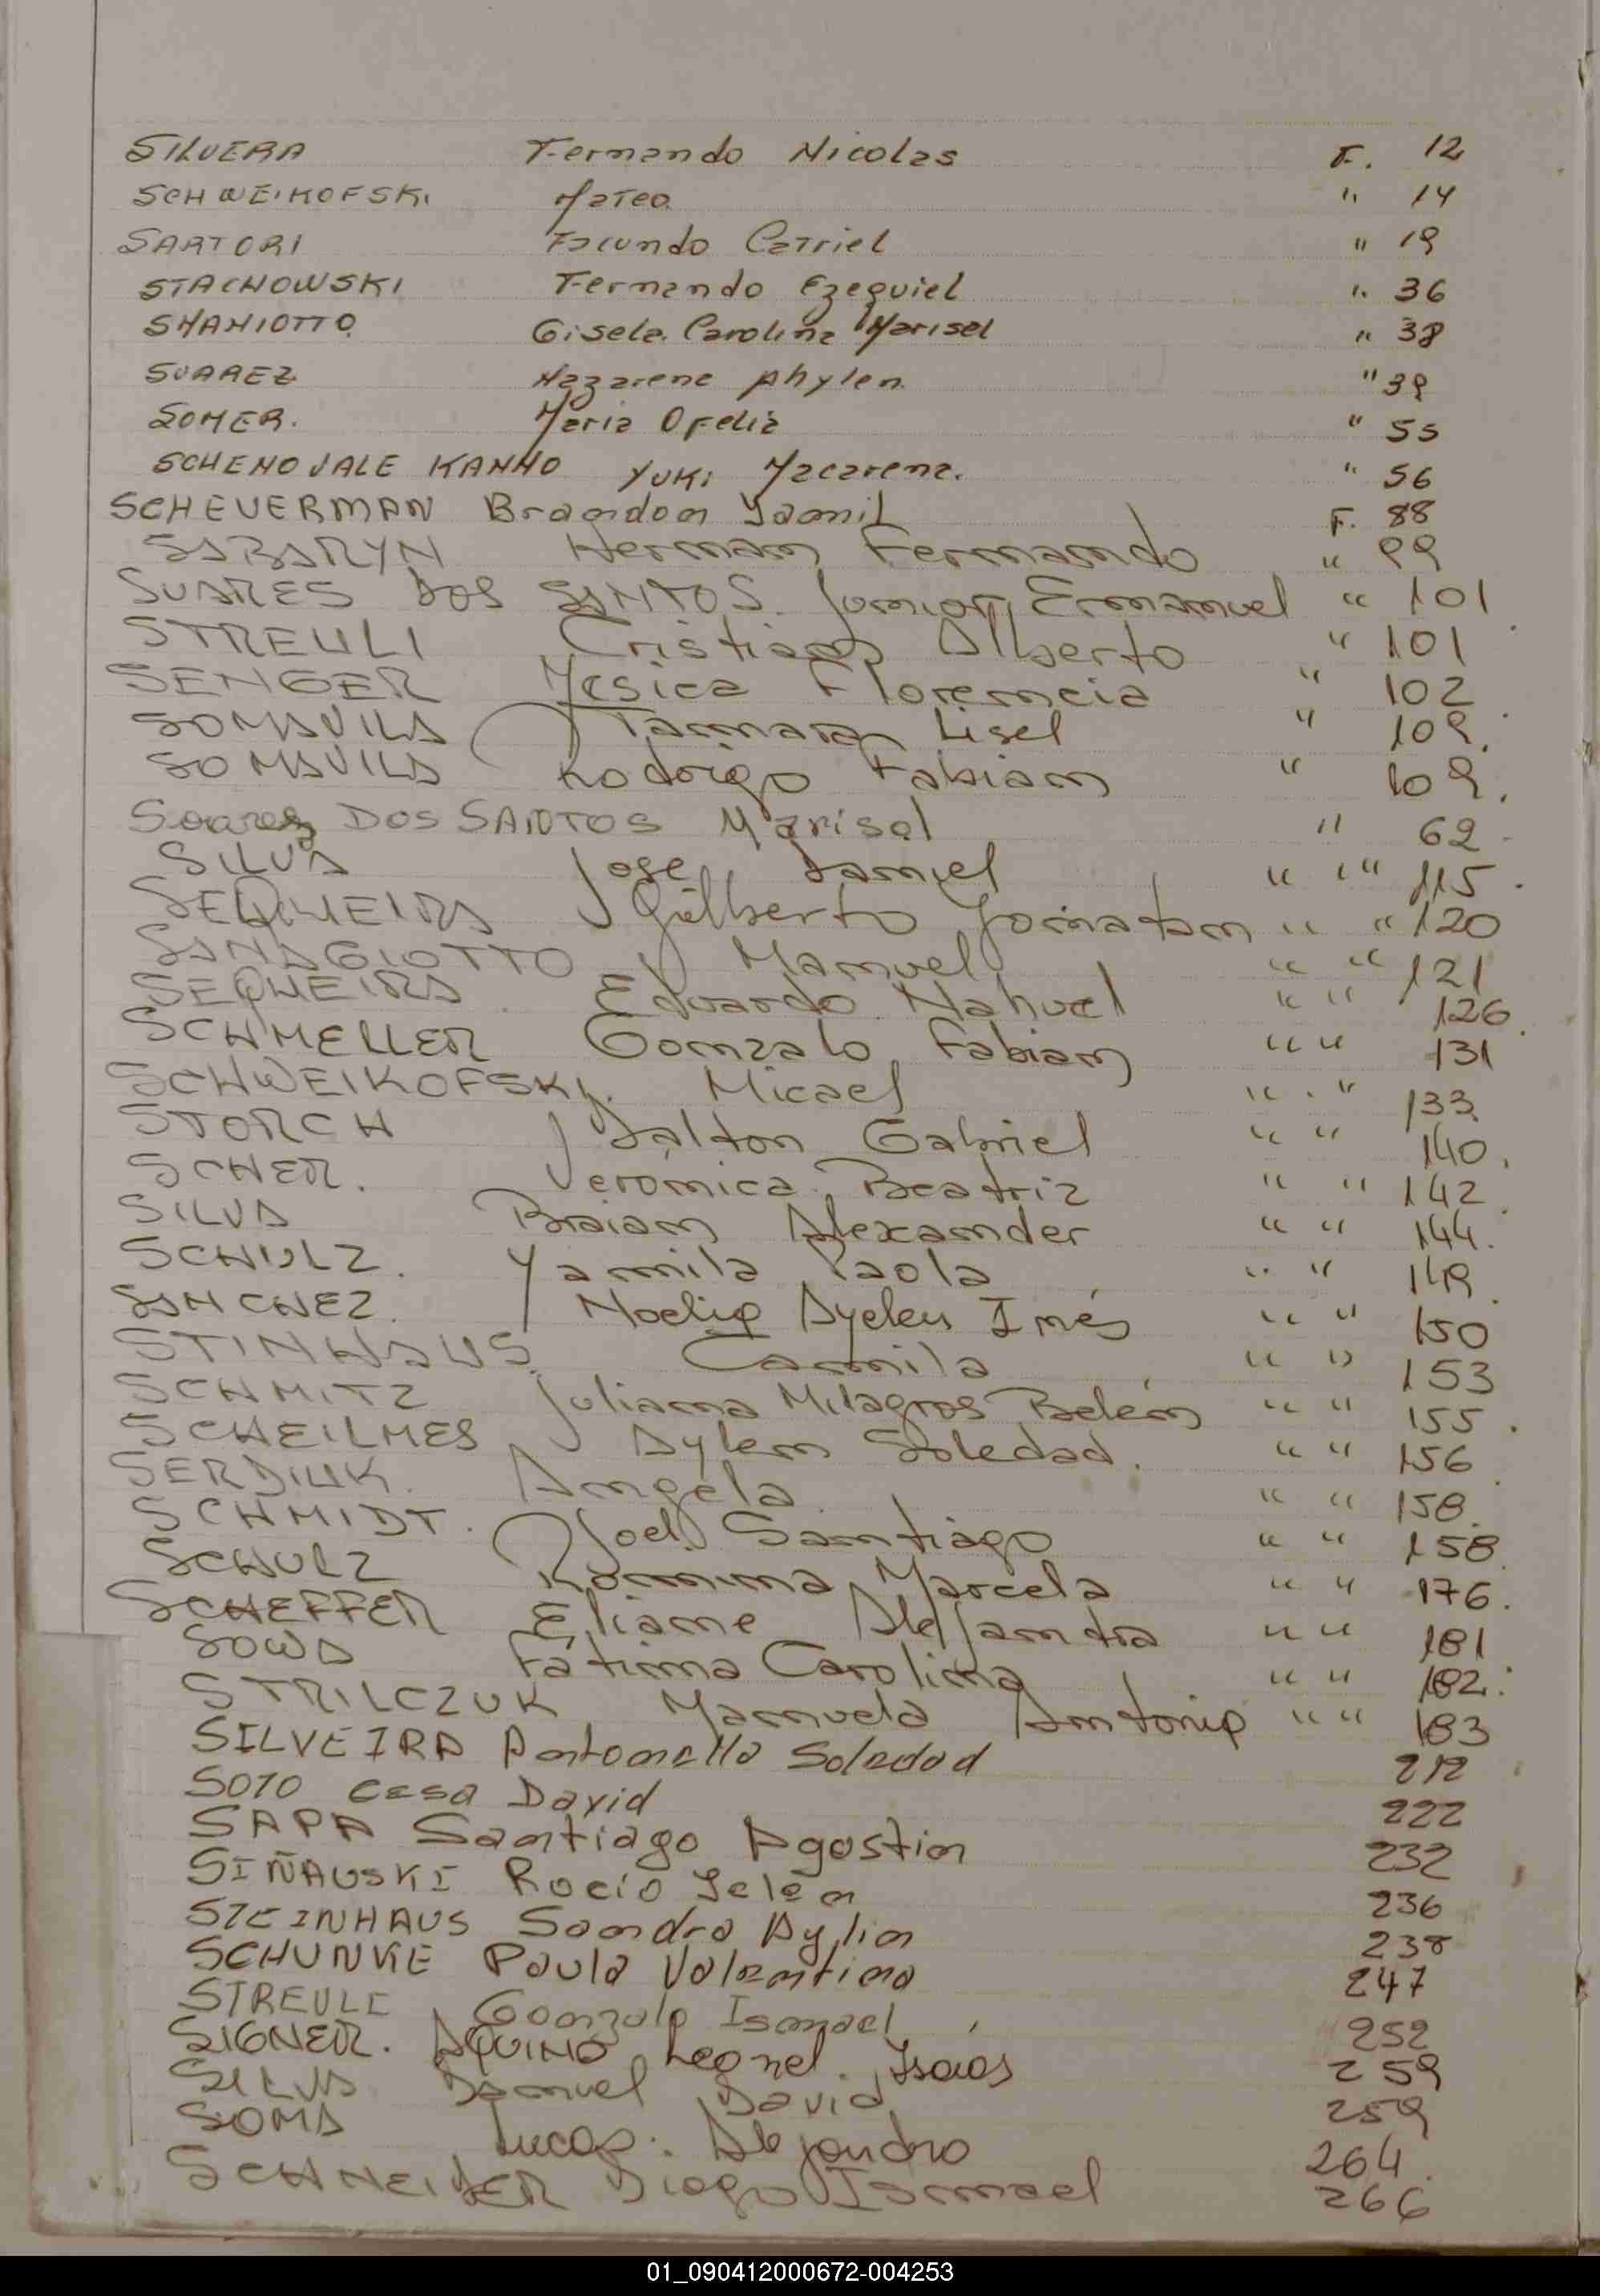 SILVERA Fernando Nicolas F. 12
SCHWEIKOFSKI Mateo " 14
SARTORI Facundo Carriel " 19
STACHOWSKI Fernando Ezequiel " 36
SMANIOTTO Gisela Carolina Marisel " 38
SUAREZ Nazarena Ahylen " 39
SOMER. Maria Ofelia " 55
SCHENOVALE KANHO YUKI Macarena. " 56
SCHEUERMAN Brandon Yamil F. 88
SABARYN Hernan Fernando " 99
SUARES DOS SANTOS. Junior Emmanuel " 101
STREULI Cristian Alberto " 101
SENGER Yesica Florencia " 102
SOMAVILA Tamara Lisel " 109.
SOMAVILA Rodrigo Fabian " 109.
Soarez DOS SANTOS Marisol " 62
SILVA Jose Daniel " " " 115.
SEQUEIRA Gilberto Jonatan " " 120
SANAGIOTTO Manuel " " 121
SEQUEIRA Eduardo Nahuel " " 126.
SCHMELLER Gonzalo Fabian " " 131
SCHWEIKOFSKI. Micael " " 133
STORCH Dalton Gabriel " " 140.
SCHER. Verónica Beatriz " " 142
SILVA Braian Alexander " " 144.
SCHULZ. Yamila Paola " " 149
SANCHEZ. Noelia Ayelen Inés " " 150
STINHAUS. Camila " " 153
SCHMITZ Juliana Milagros Belén " " 155.
SCHEILMES Aylen Soledad. " " 156
SERDIUK. Angela " " 158.
SCHMIDT. Joel Santiago " " 158.
SCHULZ Romina Marcela " " 176.
SCHEFFER Eliane Alejandra " " 181
SOWA Fatima Carolina " " 182.
STRILCZUK Manuela Antonia " " 183
SILVEIRA Antonella Soledad 212
SOTO Cesa David 222
SAPA Santiago Agostin 232
SIÑAUSKI Rocío Belén 236
STEINHAUS Sandra Aylin 238
SCHUNKE Paula Valentina 247
STREULI Gonzalo Ismael 252
SIGNER. AQUINO Leonel. Isaias 259
SILVA Samuel David 259
SOMA Lucas. Alejandro 264.
SCHNEIDER Diego Ismael 266
01_090412000672-004253